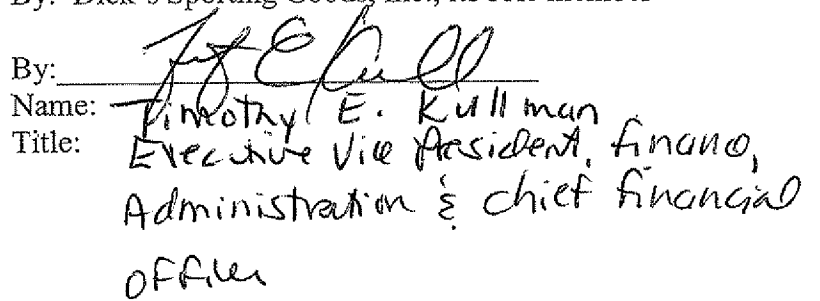 By: Dick's Sporting Goods, Inc., its sole member
By:
Name: Timothy E. Kullman
Title: Executive Vice President, Finance,
Administration & Chief Financial
Officer